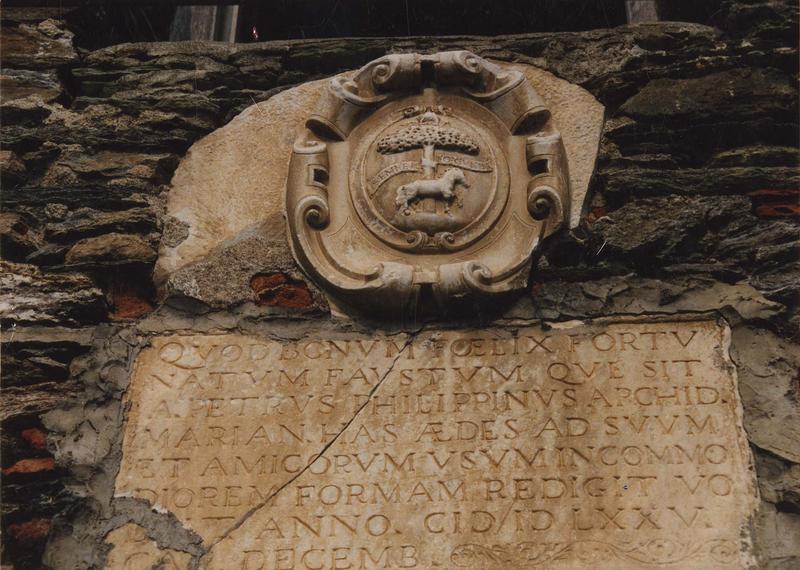 SEMPER
QVOD BONVM FŒLIX FORTV
NATVM FAVSTVM QVE SIT
A. PETRVS PHILIPPINVS ARCHID.
MARIAN. HAS ÆDES AD SVVM
ET AMICORVM VSVM IN COMMO
DIOREM FORMAM REDIGIT VO
ANNO. CIↃ IↃ LXXV.
DECEMB.